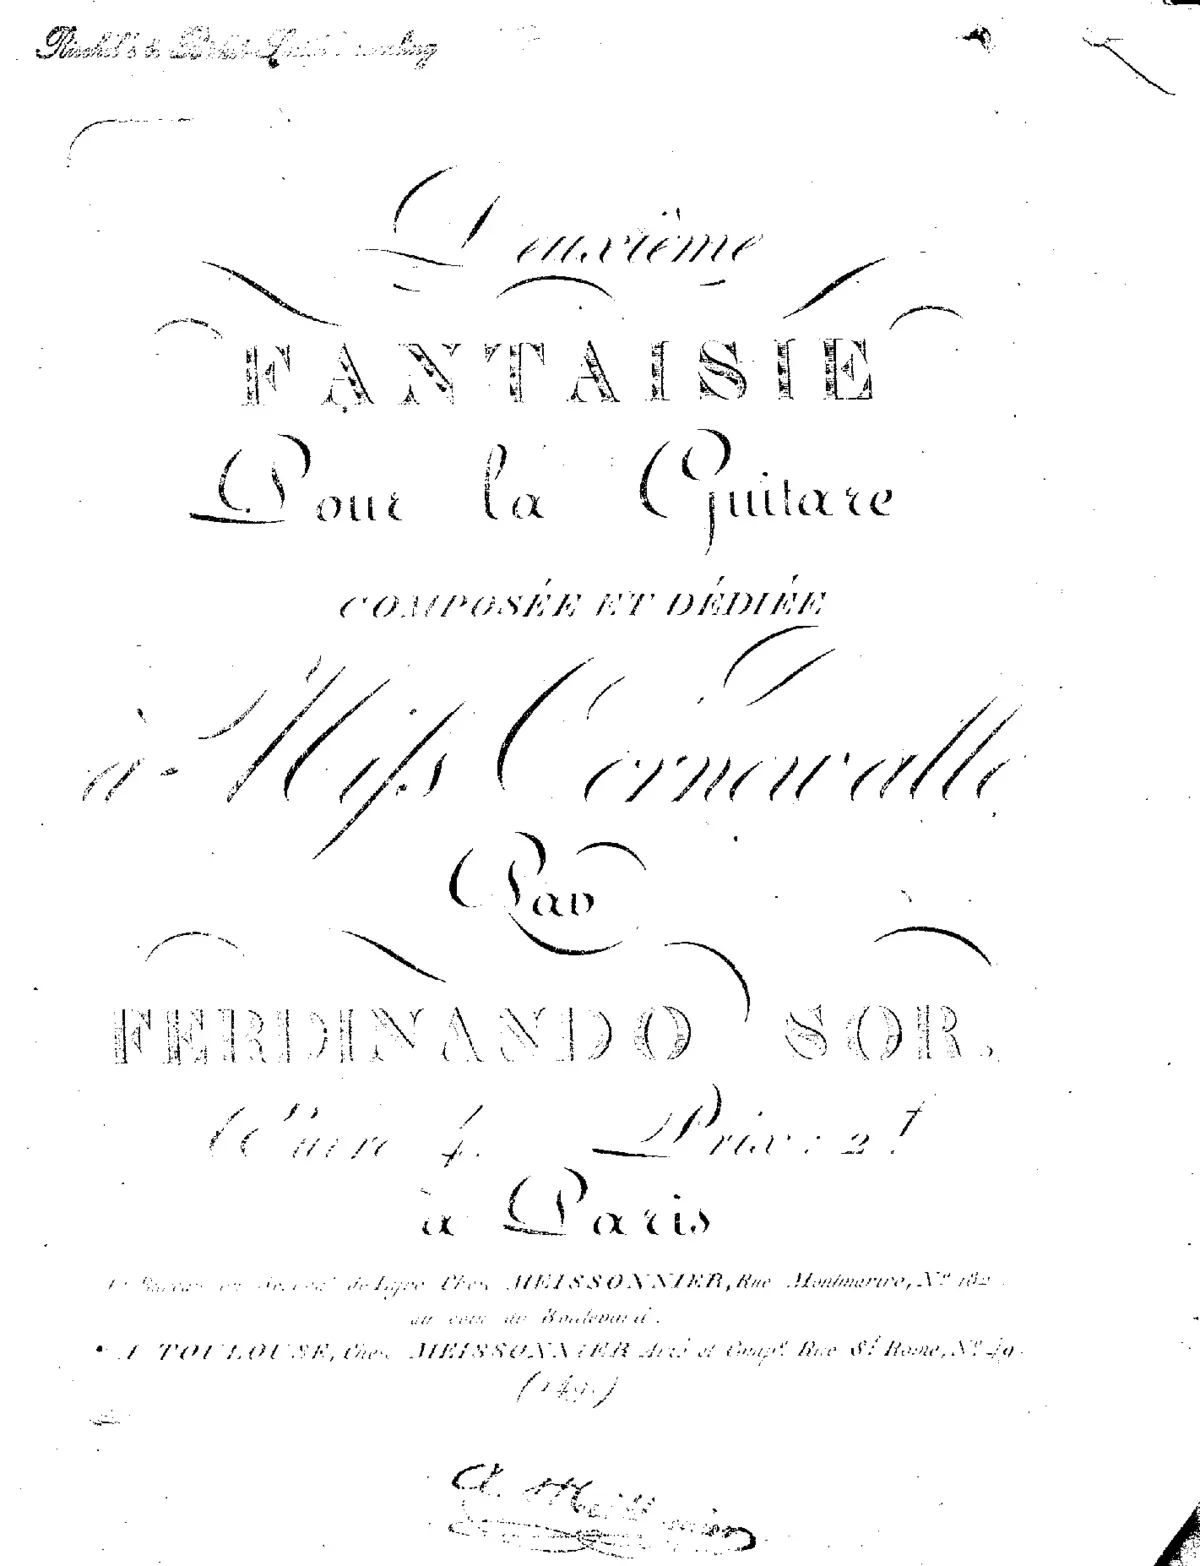 Deuxième
FANTAISIE
Pour la Guitare
COMPOSÉE ET DÉDIÉE
à Miſs Cornewalle
Par
FERDINANDO SOR.
Œuvre 4. Prix: 2.f
à Paris
de Lyre Chez MEISSONNIER, Rue Montmartre, N.º 182.
au coin du Boulevard.
A TOULOUSE, Chez MEISSONNIER et Comp.e Rue S.t Rome, N.º 49.
A. Meissonnier